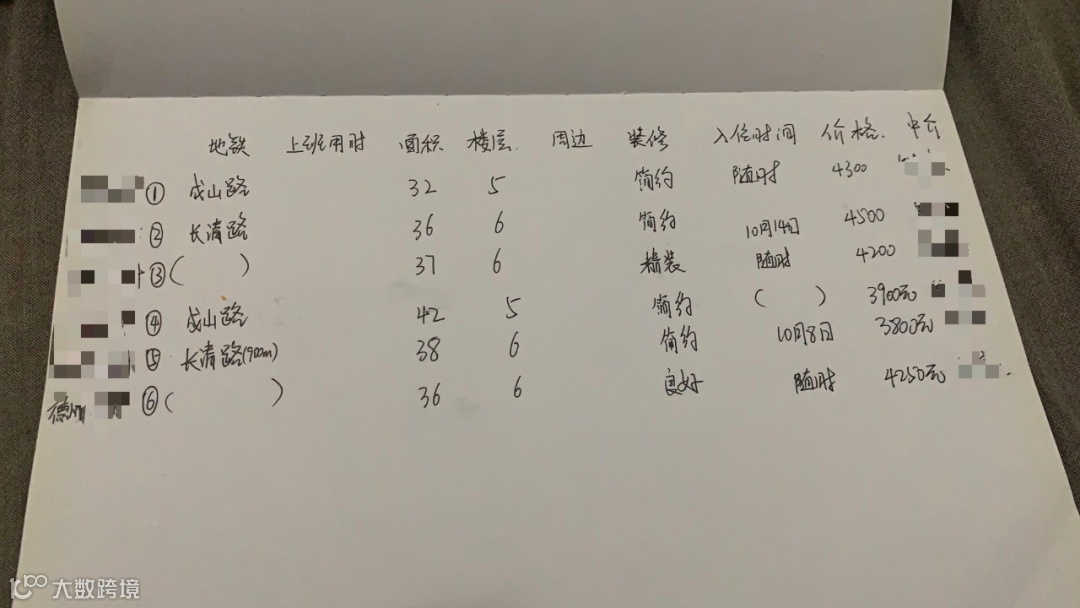 地铁 上班用时 面积 楼层 周边 装修 入住时间 价格 中介
① 成山路 32 5 简约 随时 4300
② 长清路 36 6 简约 10月14日 4500
③ ( ) 37 6 精装 随时 4200
④ 成山路 42 5 简约 ( ) 3900元
⑤ 长清路(900m) 38 6 简约 10月8日 3800元
德州 ⑥ ( ) 36 6 良好 随时 4250元
大数跨境